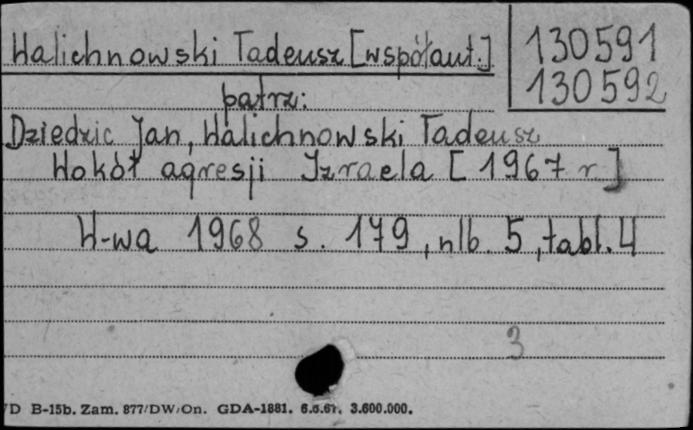 Walichnowski Tadeusz [współaut.]
130591
130592
patrz:
Dziedzic Jan, Walichnowski Tadeusz
Wokół agresji Izraela [1967 r]
W-wa 1968 s. 179, nlb. 5, tabl. 4
3
D B-15b. Zam. 877/DW/On. GDA-1881. 3.600.000.